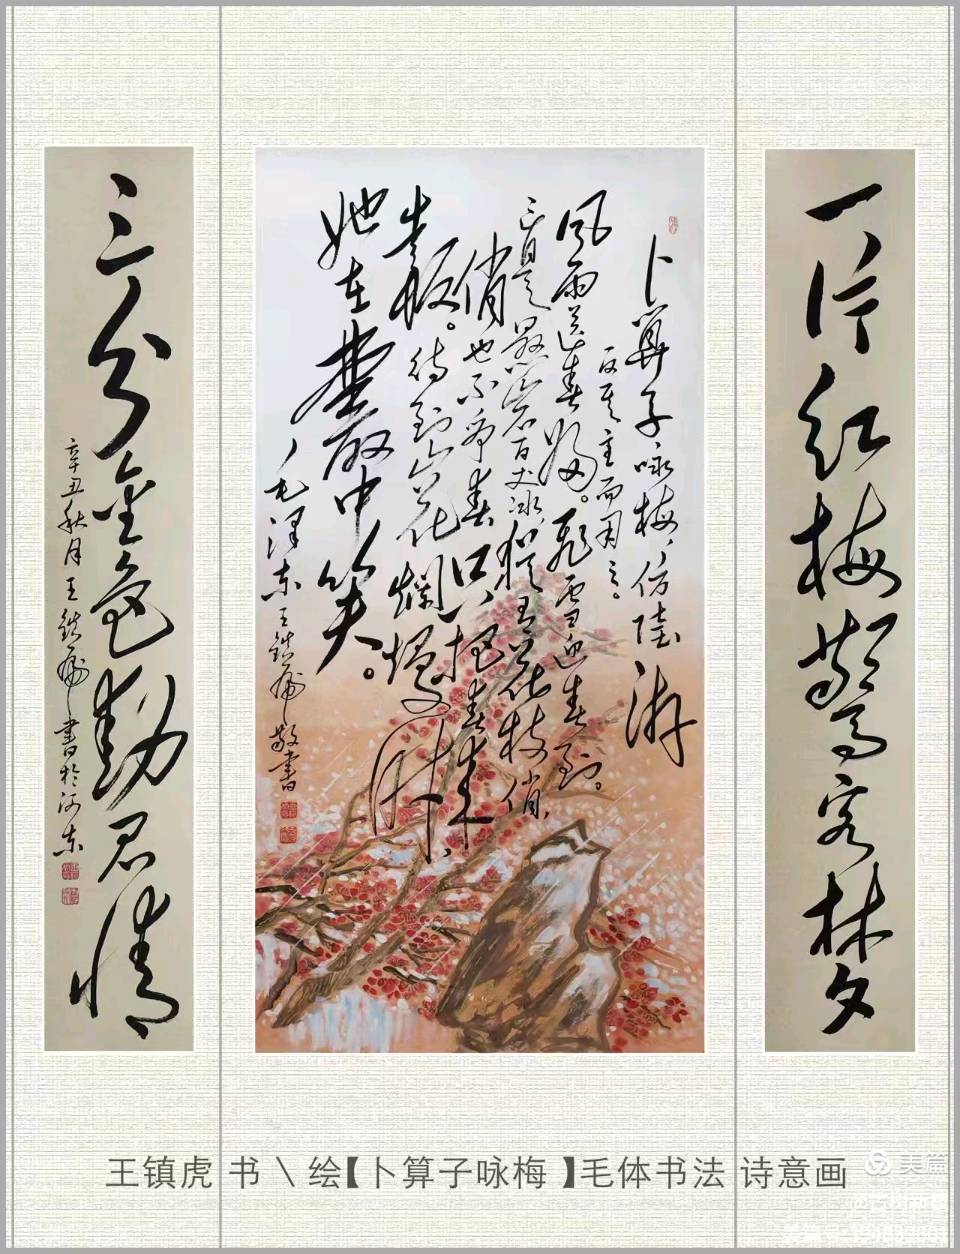 一片红梅驚客梦
卜算子咏梅、仿陆游
反其意而用之。
风雨送春归。飛雪迎春到。
已是悬岩百丈冰，犹有花枝俏，
俏也不争春只把春来
报。待到山花烂熳时、
她在叢中笑。
毛泽东 王镇虎敬書
三分金色動君情
辛丑秋月王镇虎書於河东
王镇虎 书 \ 绘【卜算子咏梅 】毛体书法 诗意画
美篇